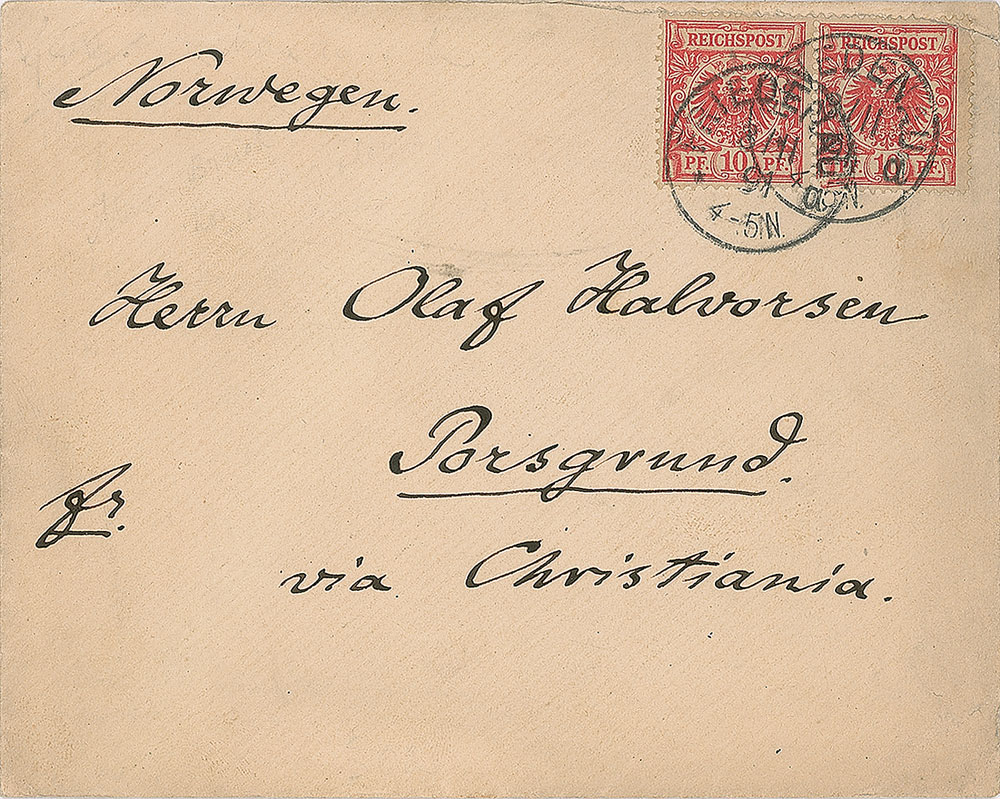 Norwegen.
REICHSPOST REICHSPOST
PF. 10 PF. PF. 10 PF.
91
4-5N.
Herrn Olaf Halvorsen
Porsgrund.
fr.
via Christiania.